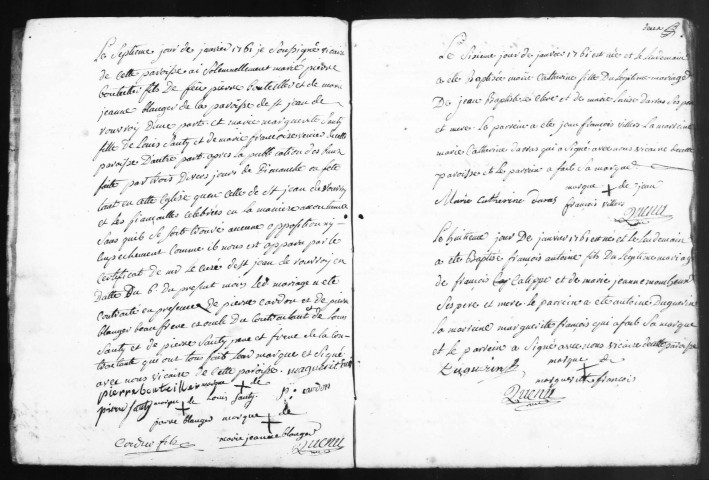 Le Septieme jour de janvier 1761 je Soussigné vicaire
de cette paroisse ai Solemnellement marié pierre
bouteiller fils de feu pierre bouteiller et de marie
jeanne blanger de la paroisse de st jean de
rouvroy d'une part et marie margueritte Sauty
fille de Louis Sauty et de marie francoise de cette
paroisse d'autre part apres la publication des bans
faite par trois divers jours de Dimanche ou fete
tant en cette Eglise qu'en celle de st jean de rouvroy
et les fiançailles célébrées en la maniere accoutumée
Sans qu'il se soit trouvé aucune opposition ny
empechement comme il nous est apparu par le
certificat de mr le Curé de st jean de rouvroy en
datte du 6e du present mois led mariage a eté
contracté en presence de pierre cardon et de pierre
blanger beau frere et oncle du contractant et de Louis
Sauty et de pierre Sauty pere et frere de la con
tractante qui ont tous fait leur marque et Signé
avec nous vicaire de cette paroisse
pierre bouteiller marque de
pierre Sauty marque de Louis Sauty p. cardon
pierre blanger marque de
marie jeanne blanger
Ducnil
Le Sixieme jour de janvier 1761 est née et le lendemain
a ete Baptisée marie Catherine fille Du legitime mariage
De jean Baptiste et de marie Louise Daras Ses pere
et mere Le parrein a ete jean françois villers La marreine
marie Catherine daras qui a Signé avec nous vicaire de cette
paroisse et le parrein a fait Sa marque
marque de jean
Marie Catherine Daras françois villers
Ducnil
Le huitieme jour De janvier 1761 est né et le lendemain
a ete Baptisé françois antoine fils du legitime mariage
de françois Calippe et de marie jeanne
Ses pere et mere le parrein a ete antoine Duquerin
La marreine margueritte françois qui a fait Sa marque
et le parrein a Signé avec nous vicaire de cette paroisse
Duquerin marque de
margueritte françois
Ducnil